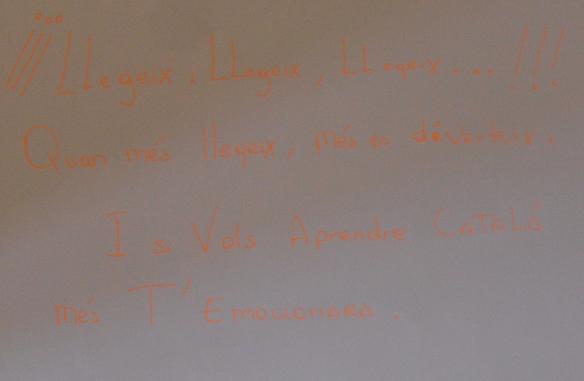 ¡¡¡LLegeix, LLegeix, LLegeix....!!!
Quan més llegeix, més es déverteix.
I si Vols Aprendre CATALÀ
més T'Emocionarà.